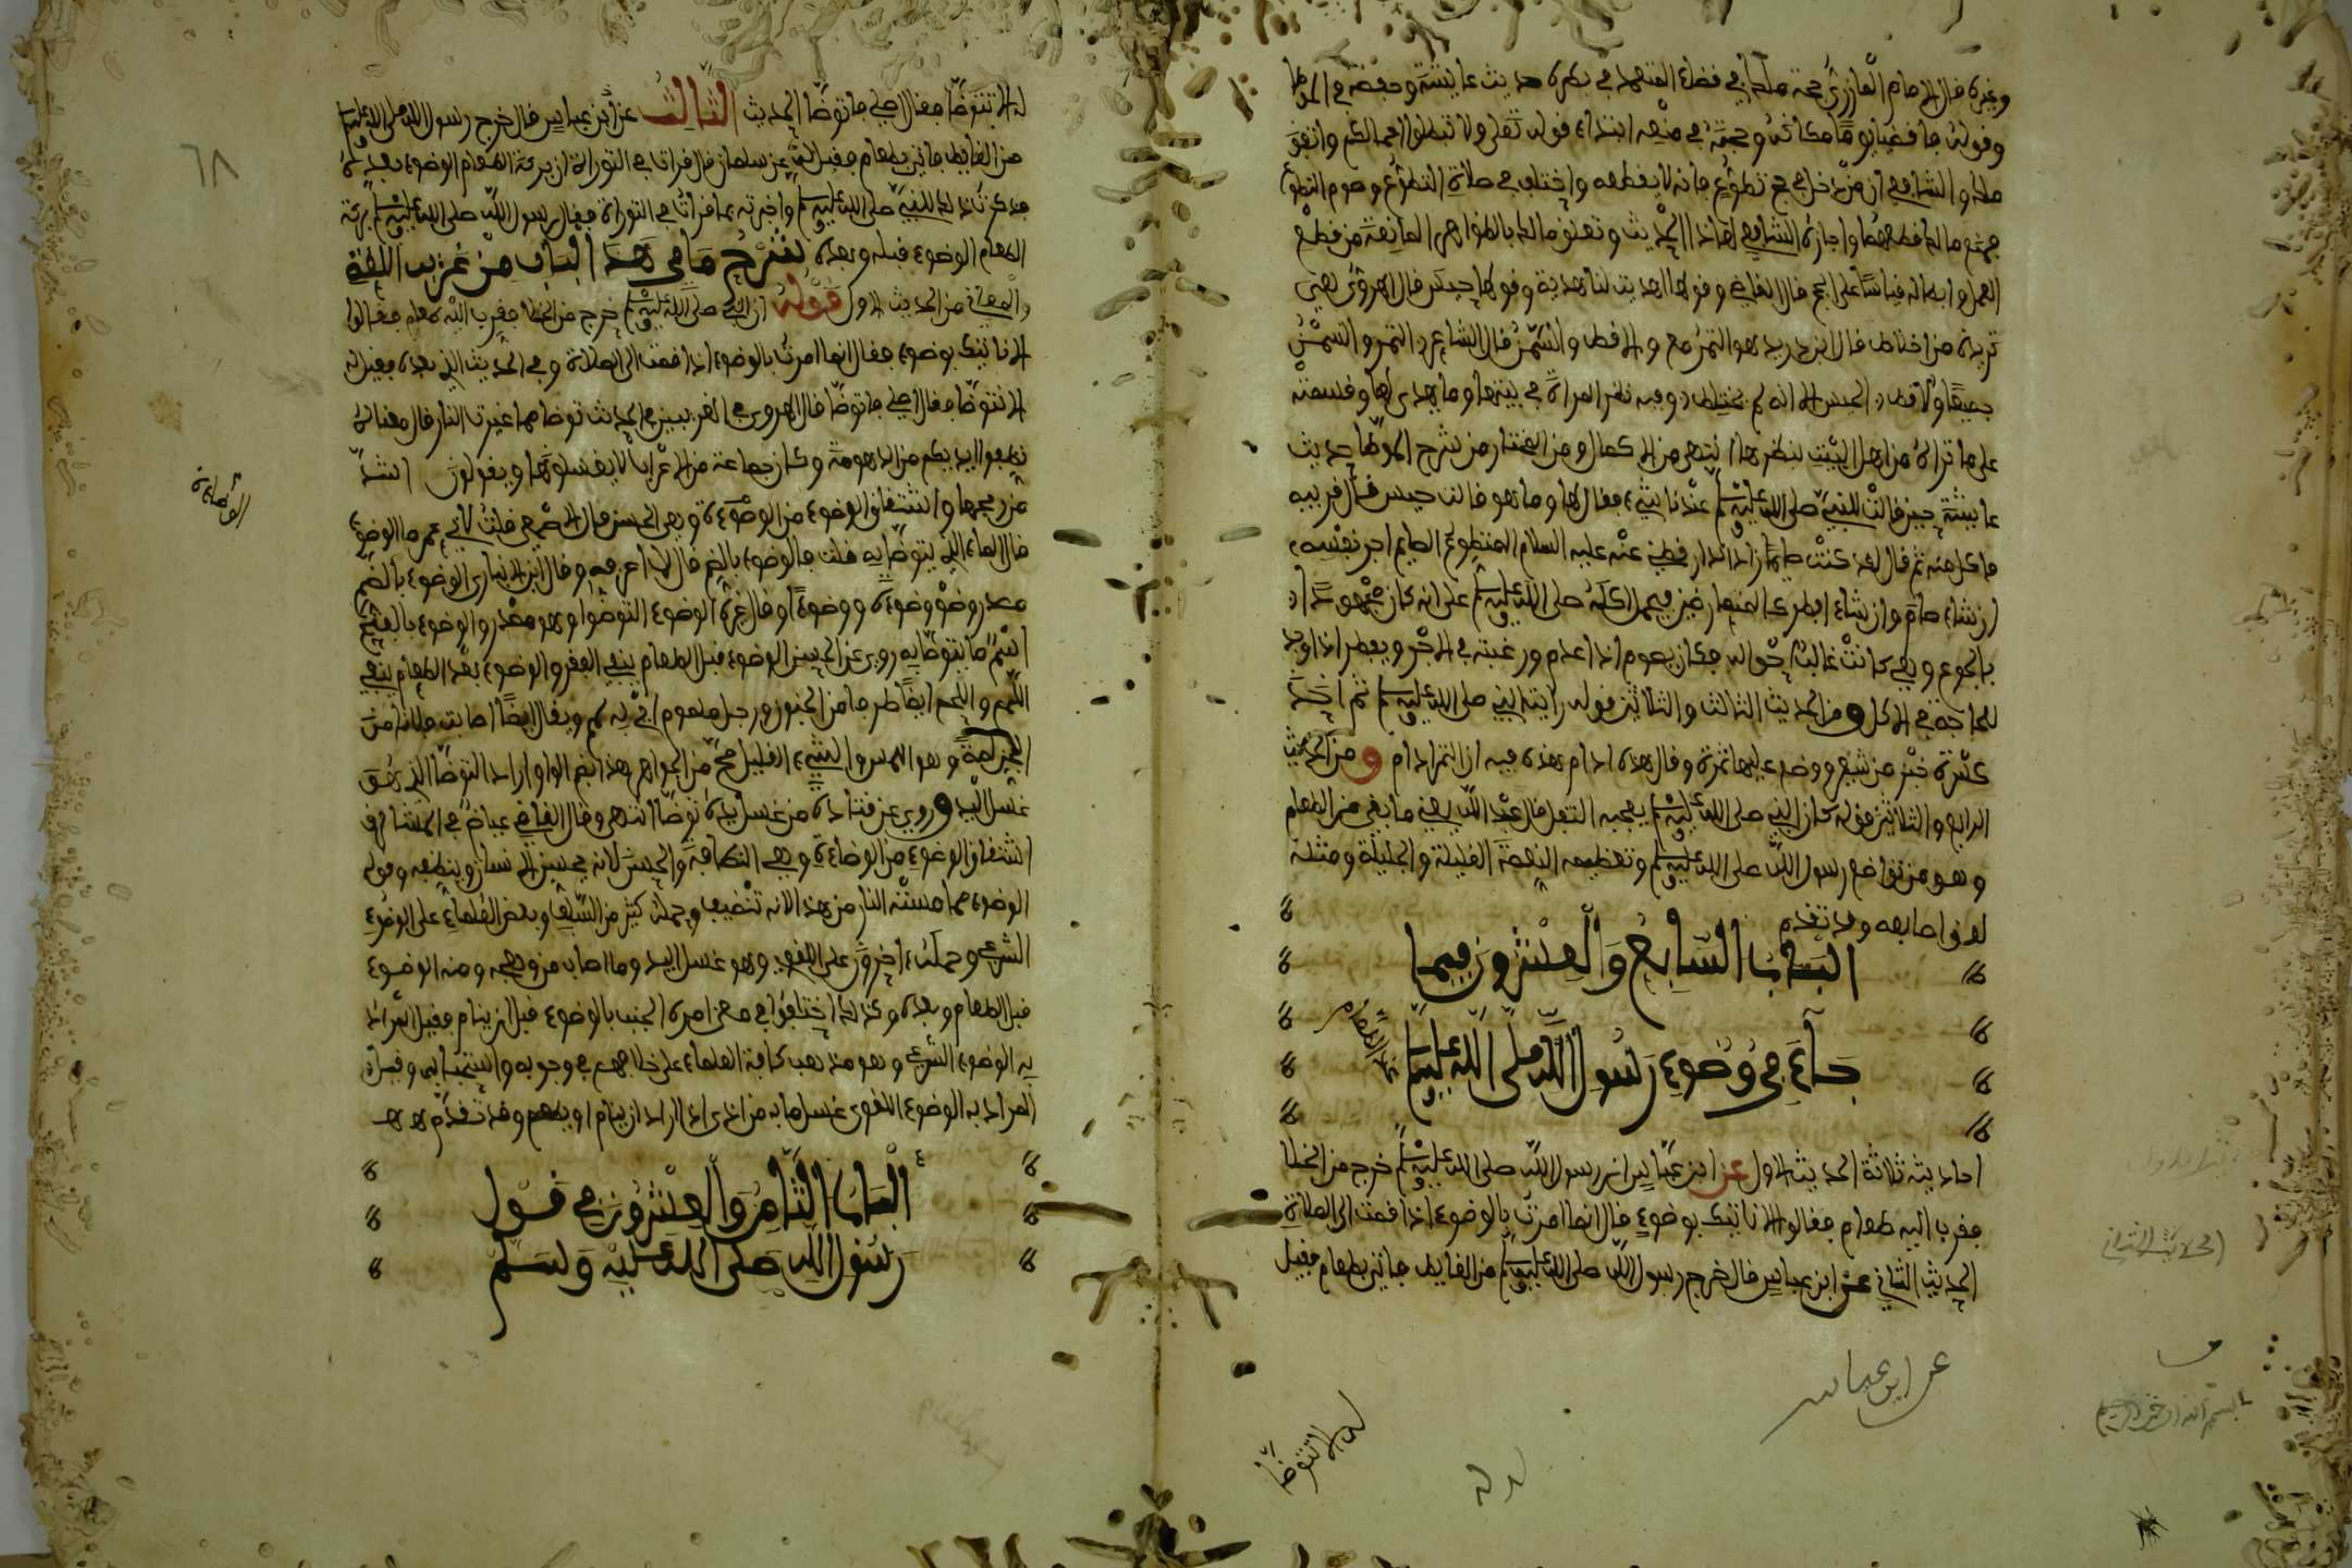 وغيره قال الإمام المازري حجة مالك في قضاء المتعمد في بطره حديث عايشة وحفصة في الموطا
وقوله فاقضيا يوما مكانه وحجته في منعه ابتداء قوله تعلى ولا تبطلوا اعمالكم واتفق
ملك والشافعي ان من دخل في حج تطوع فانه لا يقطعه واختلف في صلاة التطوع وصوم التطوع
فمنع مالك قطعهما واجازه الشافعي لهاذا الحديث وتعلق مالك بالظواهر المانعة من قطع
العمل وابطاله قياسا على الحج قال القاضي وقولها اهديت لنا هدية وقولها حيس قال الهروي يعني
ثريدة من اخلاط قال ابن دريد هو التمر مع والاقط والسمن قال الشاعر التمر والسمن
جميعا والاقط الحيس الا انه لم يختلط وفيه نظر المراة في بيتها وما يهدى لها وقسمته
على ما تراه من اهل البيت بنظرها انتهى من الاكمال ومن المختار من شرح الموطا حديث
عايشة حين قالت للنبي صلى الله عليه وسلم عندنا شيء فقال لها وما هو قالت حيس قال قربيه
فاكل منه ثم قال لقد كنت صايما زاد الدارقطني عنه عليه السلام المتطوع الصايم امير نفسه
ان شاء صام وان شاء افطر
بالجوع وهي كانت غالب احواله فكان يصوم اذا عدم ورغبته في الاجر ويفطر اذا وجد
للحاجة في الاكل ومن الحديث الثالث والثلاثين قوله رايت النبي صلى الله عليه وسلم ثم اخذ
كسرة خبز من شعير ووضع عليها تمرة وقال هذه ادام هذه فيه ان التمر ادام ومن الحديث
الرابع والثلاثين قوله كان النبي صلى الله عليه وسلم يعجبه الثفل قال عبد الله يعني ما بقي من الطعام
وهو من تواضع رسول الله صلى الله عليه وسلم وتعظيمه النعمة القليلة والجليلة ومثله
لعق اصابعه وقد تقدم
الباب السابع والعشرون فيما
جاء في وضوء رسول الله صلى الله عليه وسلم
عند الطعام
احاديثه ثلاثة الحديث الاول عن ابن عباس ان رسول الله صلى الله عليه وسلم خرج من الخلا
فقرب اليه طعام فقالوا الا ناتيك بوضوء قال انما امرت بالوضوء اذا قمت الى الصلاة
الحديث الثاني عن ابن عباس قال خرج رسول الله صلى الله عليه وسلم من الغايط فاتي بطعام فقيل
له الا تتوضا
عن ابن عباس
له
الحديث الثاني
له الا تتوضا فقال اصلي فاتوضا الحديث الثالث عن ابن عباس قال خرج رسول الله صلى الله عليه وسلم
من الغايط فاتي بطعام فقيل عن سلمان قال قرات في التوراة ان بركة الطعام الوضوء بعده
فذكرت ذلك للنبي صلى الله عليه وسلم واخبرته بما قرات في التوراة فقال رسول الله صلى الله عليه وسلم بركة
الطعام الوضوء قبله وبعده شرح ما في هذا الباب من غريب اللغة
والمعاني من الحديث الاول قوله ان النبي صلى الله عليه وسلم خرج من الخلا فقرب اليه طعام فقالوا
الا ناتيك بوضوء فقال انما امرت بالوضوء اذا قمت الى الصلاة وفي الحديث الذي بعده فقيل له
الا تتوضا فقال اصلي فاتوضا قال الهروي في الغريبين في الحديث توضا مما غيرت النار قال معناه
نظفوا ايديكم من الزهومة وكان جماعة من الاعراب لا يغسلونها ويقولون
من ريحها واشتقاق الوضوء من الوضوءة وهي الحسن قال الاصمعي قلت لابي عمر ما الوضوء
قال الماء الذي يتوضا به قلت فالوضوء بالضم قال لا اعرفه وقال ابن الانباري الوضوء بالضم
مصدر وضؤ وضوءة ووضوءا وقال غيره الوضوء التوضؤ وهو مصدر والوضوء بالفتح
اسم ما يتوضا به روي عن الحسن الوضوء قبل الطعام ينفي الفقر والوضوء بعد الطعام ينفي
اللمم واللمم ايضا طرف من الجنون ورجل ملموم اي به لمم ويقال ايضا اصابت فلانا من
الجن لمة وهو المس والشيء القليل صح من الجواهر
غسل اليد وروي عن قتادة من غسل يده توضا انتهى وقال القاضي عياض في المشارق
اشتقاق الوضوء من الوضاءة وهي النظافة والحسن لانه يحسن الانسان وينظفه وقوله
الوضوء مما مسته النار من هذا لانه تنضيف وحمله كثير من السلف وبعض العلماء على الوضوء
الشرعي وحمله اخرون على اللغوي وهو غسل اليد وما اصاب من وهجه ومنه الوضوء
قبل الطعام وبعده وكذلك اختلفوا في معنى امره الجنب بالوضوء قبل ان ينام فقيل المراد
به الوضوء الشرعي وهو مذهب كافة العلماء على خلافهم في وجوبه واستحبابه وقيل
المراد به الوضوء اللغوي غسل ما به من اذى اذا اراد ان ينام او يطعم وقد تقدم
الباب الثامن والعشرون في قول
رسول الله صلى الله عليه وسلم
٦٨